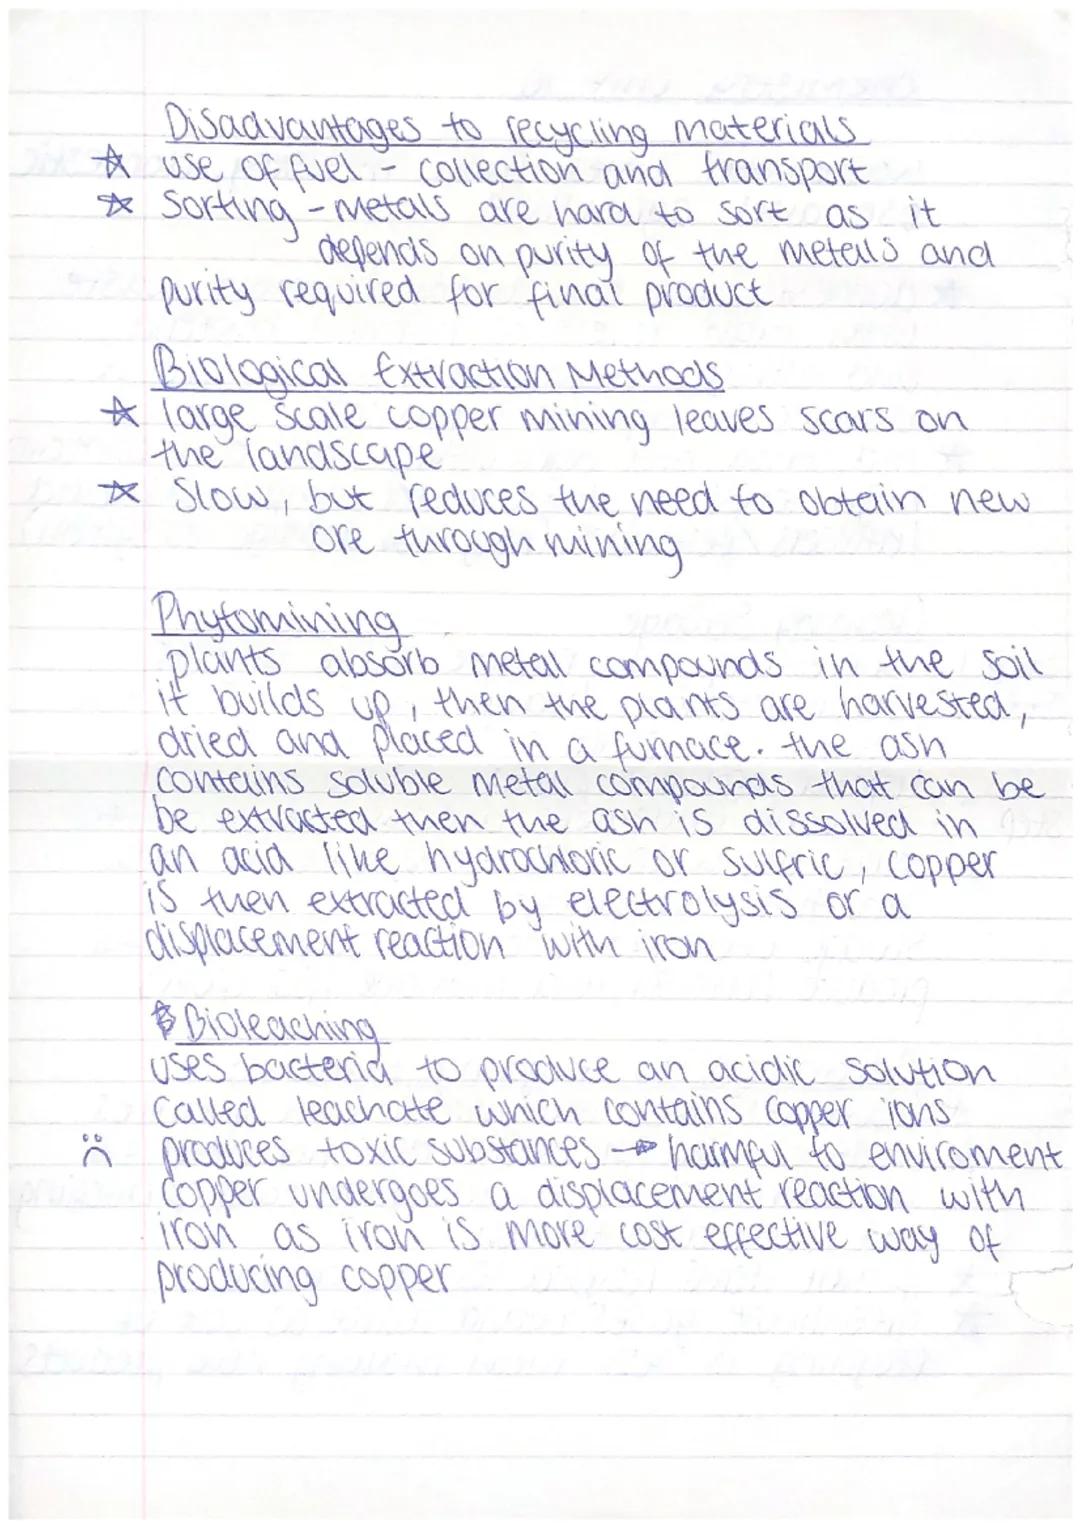 Disadvantages to recycling materials
☆ use of fuel - collection and transport
☆ Sorting - metals are hard to sort as it
depends on purity of the metals and
purity required for final product
Biological Extraction Methods
☆ large scale copper mining leaves scars on
the landscape
☆ Slow, but reduces the need to obtain new
ore through mining
Phytomining
plants absorb metal compounds in the soil
it builds up, then the plants are harvested,
dried and placed in a furnace. the ash
contains soluble metal compounds that can be
be extracted then the ash is dissolved in
an acid like hydrochloric or sulfric, copper
is then extracted by electrolysis or a
displacement reaction with iron
Bioleaching
uses bacteria to produce an acidic solution
called leachate which contains copper ions
produces toxic substances → harmful to enviroment
copper undergoes a displacement reaction with
iron as iron is more cost effective way of
producing copper